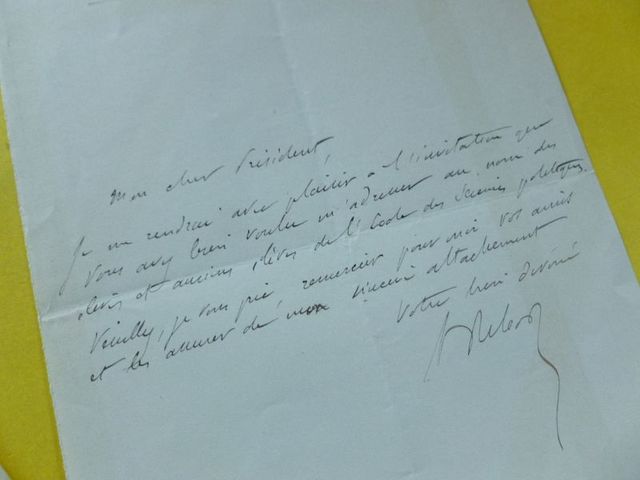 Mon cher Président,
Je me rendrai avec plaisir à l'invitation que
vous avez bien voulu m'adresser au nom des
élèves et anciens élèves de l'École des Sciences politiques.
Veuillez, je vous prie, remercier pour moi vos amis
et les assurer de mon sincère attachement
Votre bien dévoué